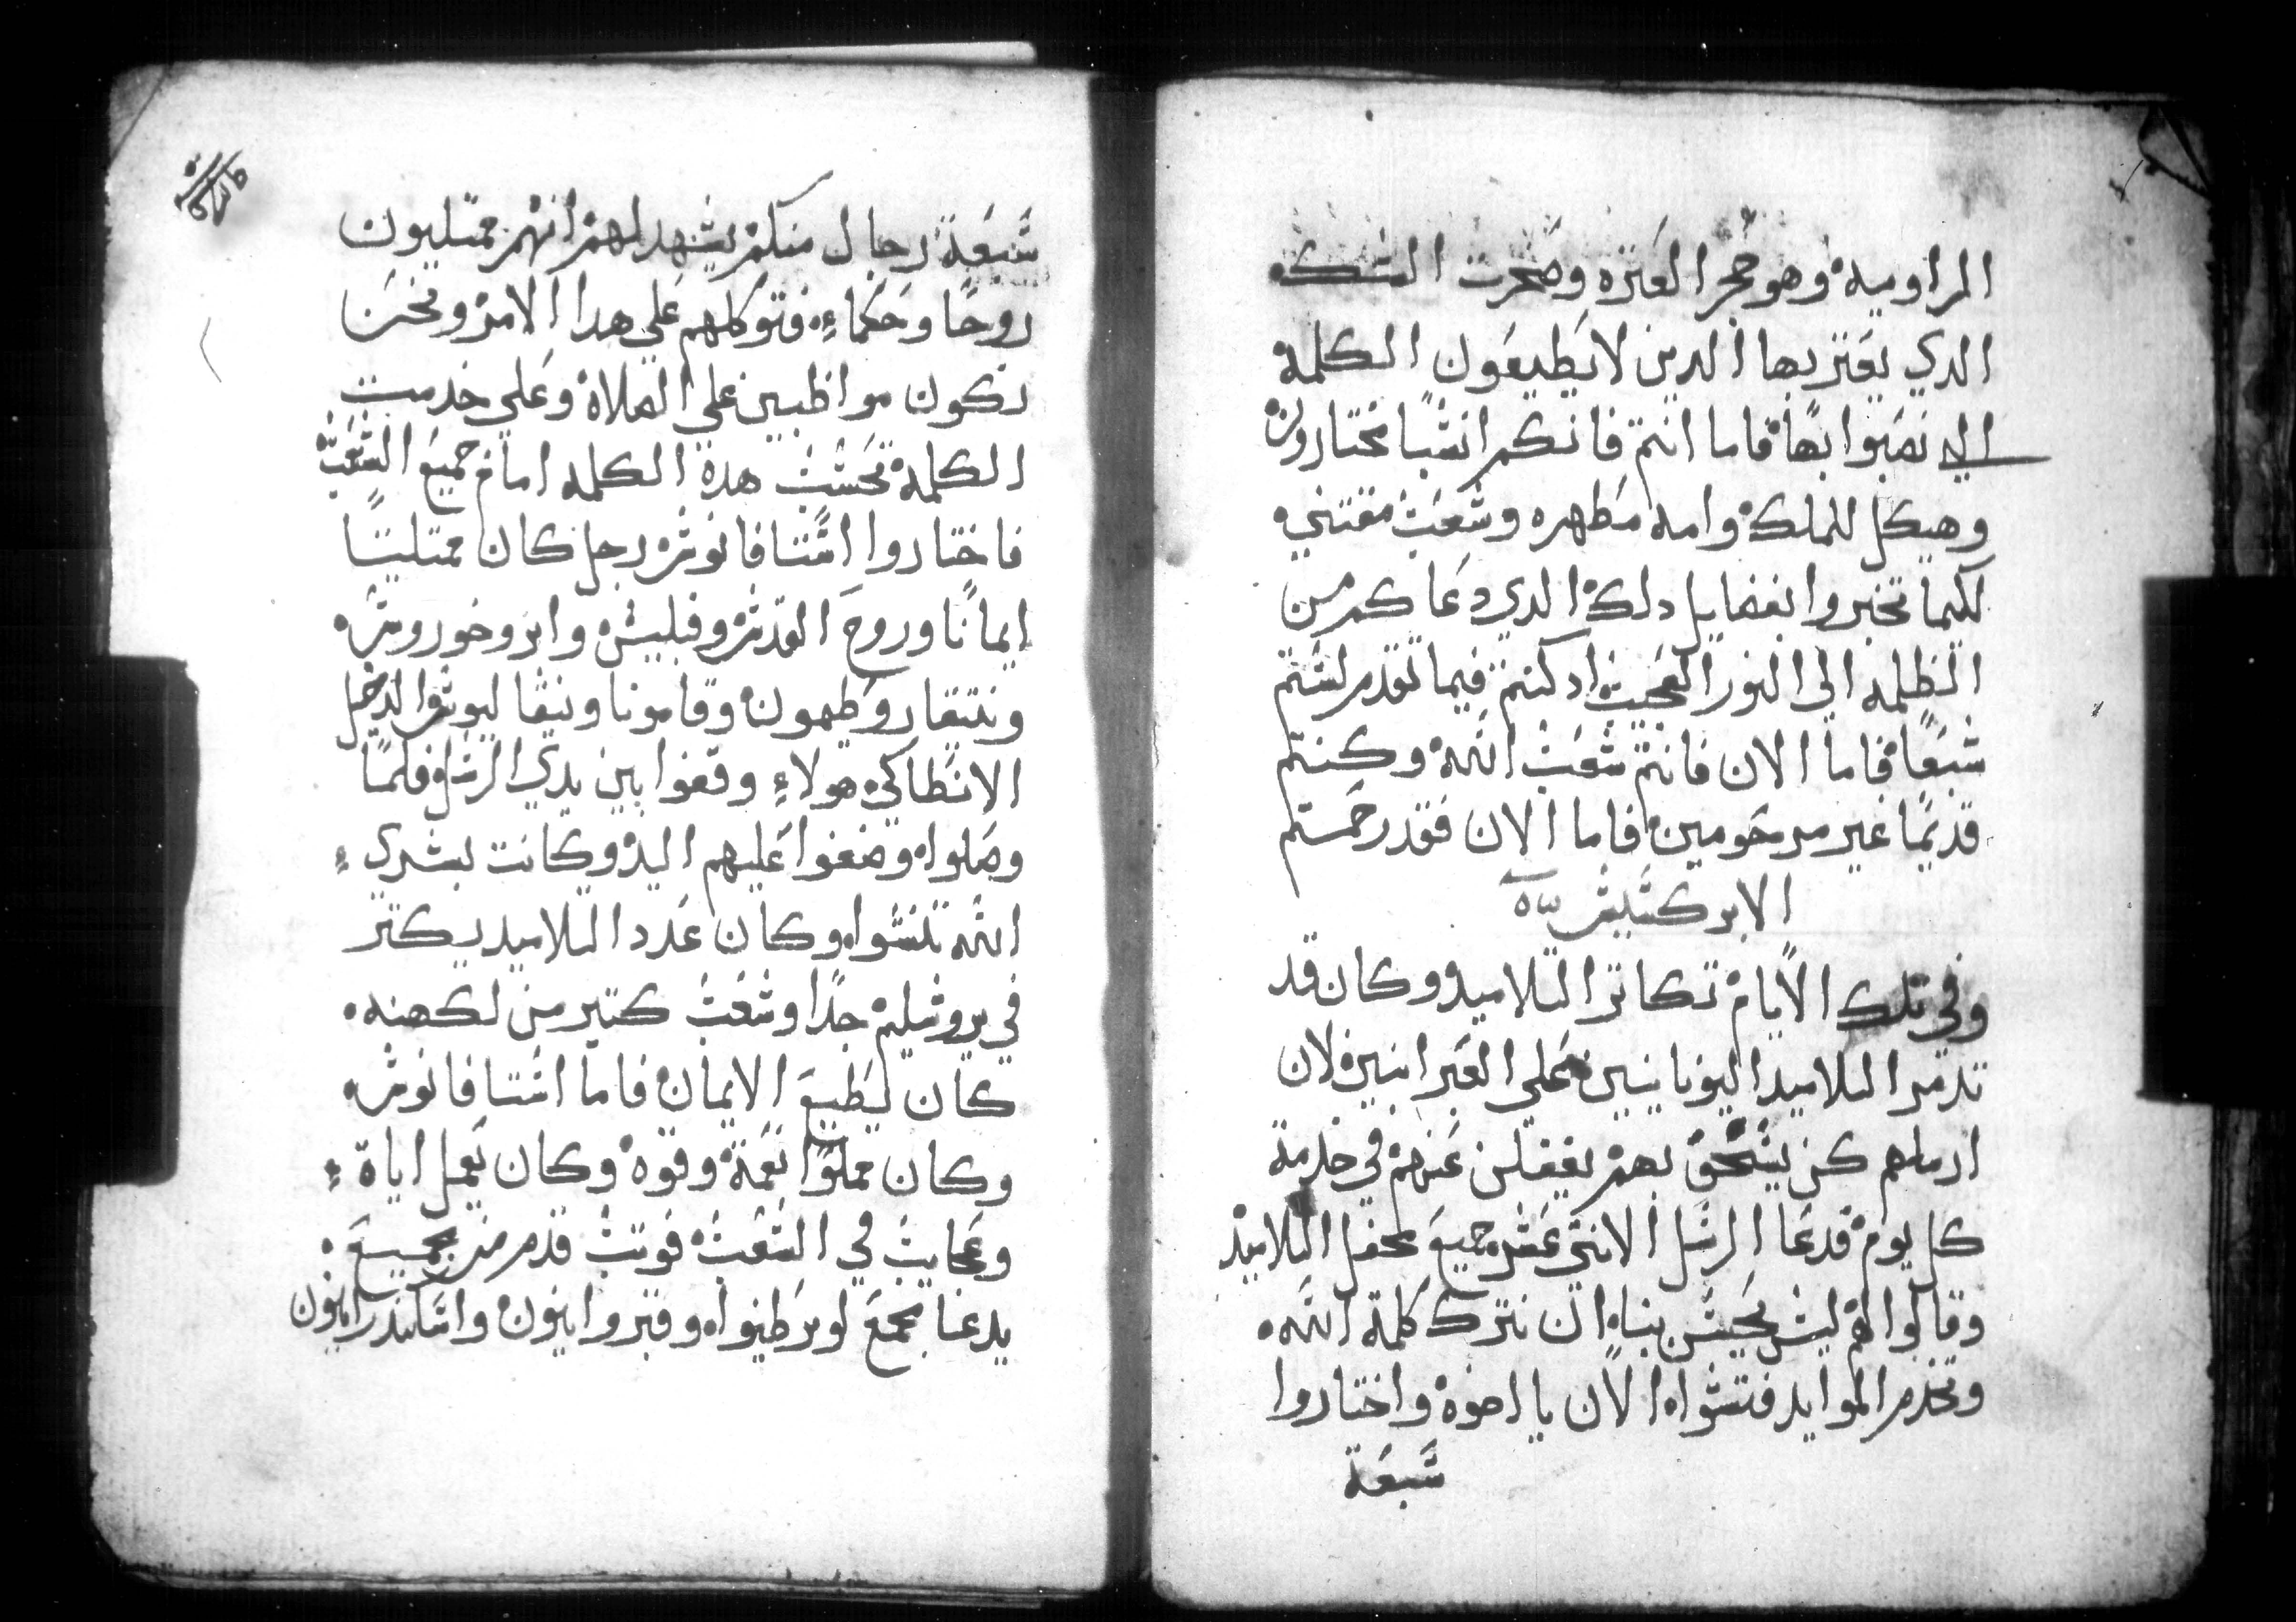 المراويه وهو حجر العتره وصخرت الشكه
الدي يعتر بها الدين لا يطيعون الكلمة
الي نصبوا بها فاما انتم فانكم انسبًا مختارون
وهيكل للملك وامه مطهره وشعب مقتني
لكيما تخبروا بفضايل دلك الدي دعاكم من
الظلمه الي النور العجيب اد كنتم فيما تقدم لستم
شبعًا فاما الان فانتم شعب الله وكنتم
قديمًا غير مرحومين فاما الان فقد رحمتم
الابركسيس
وفي تلك الايام تكاتر التلاميد وكان قد
تدمر التلاميد اليونانيين علي العبرانيين لان
ارملهم كن يستحق بهم يغفلن عنهم في خدمة
كل يوم فدعا الرسل الاتني عشر جميع محفل التلاميد
وقالوا لهم ليس يحسن بنا ان نترك كلمة الله
ونخدم الموايد فتشوا الان يا اخوة واختاروا
سبعة
سبعة رجال منكم يشهد لهم انهم ممتليون
روحًا وحكماء فتوكلهم علي هدا الامر ونحن
نكون مواظبين علي الصلاة وعلي خدمت
الكلمة فحسنت هده الكلمه امام جميع الشعب
فاختاروا استافانوس رجل كان ممتليًا
ايمانًا وروح القدس وفيلبس وابروخوروس
ونيقار وطيمون وقامونا ونيقاليوس الدخيل
الانطاكي هولاء وقفوا بين يدي الرسل فلما
وصلوا وضعوا عليهم اليد وكانت بشري
الله تنشوا وكان عدد التلاميد يكتر
في يروشليم جدًا وشعب كتير من لكهنه
كان ليطيع الايمان فاما استافانوس
وكان مملوًا نعمة وقوه وكان يعمل اياة
وعجايب في الشعب فوتب قدم من مجميع
يدعا بجمع لوبرطنوا وقبروانيون واسكندرانيون